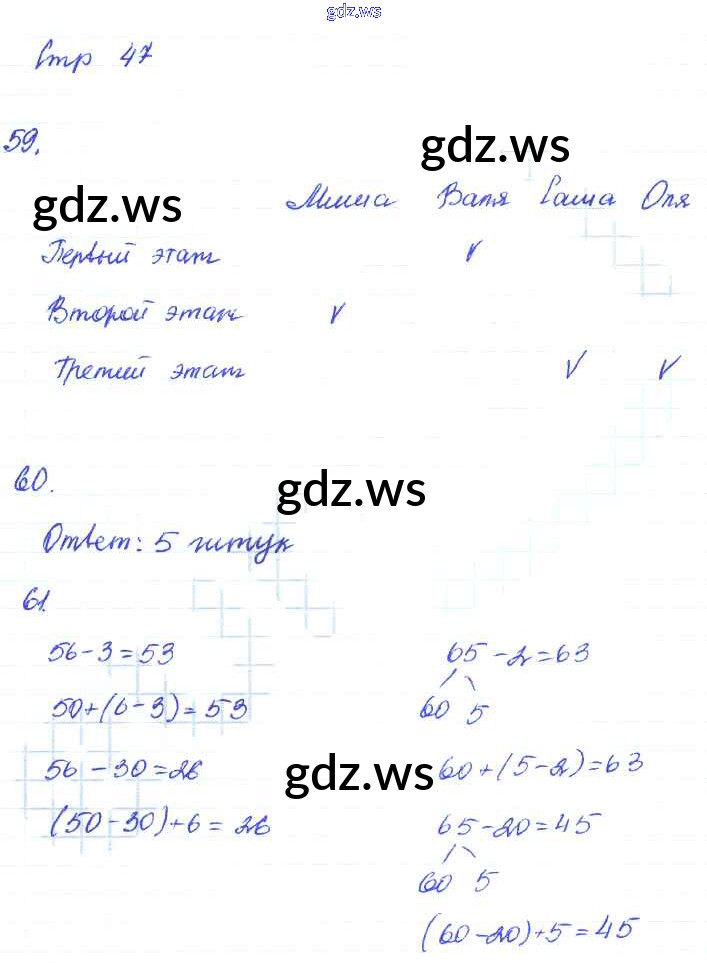 gdz.ws
Стр 47
59.
gdz.ws
gdz.ws
Миша Валя Саша Оля
Первый этап v
Второй этап v
Третий этап v v
60.
gdz.ws
Ответ: 5 штук
61.
56-3=53
65-2=63
50+(6-3)=53
60 5
56-30=26
gdz.ws
60+(5-2)=63
(50-30)+6=26
65-20=45
60 5
(60-20)+5=45